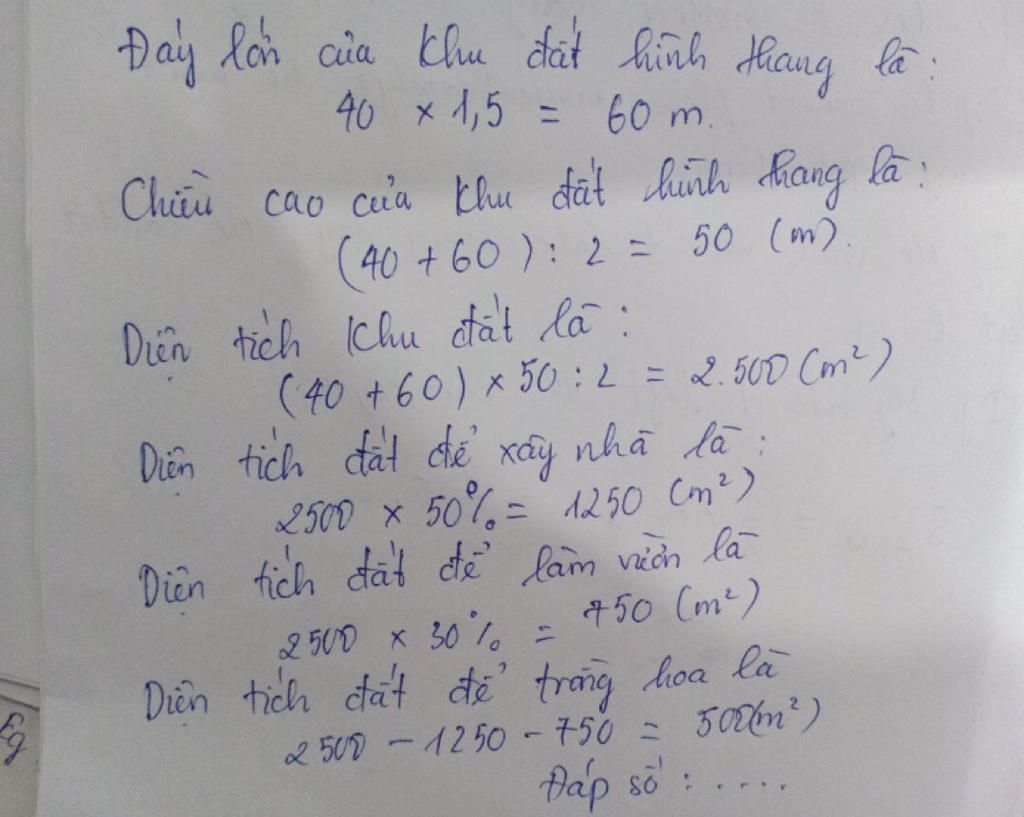 Đáy lớn của khu đất hình thang là:
40 x 1,5 = 60 m.
Chiều cao của khu đất hình thang là:
(40 + 60) : 2 = 50 (m).
Diện tích khu đất là:
(40 + 60) x 50 : 2 = 2.500 (m²)
Diện tích đất để xây nhà là:
2500 x 50% = 1250 (m²)
Diện tích đất để làm vườn là
2500 x 30% = 750 (m²)
Diện tích đất để trồng hoa là
2500 - 1250 - 750 = 500(m²)
Đáp số : .....